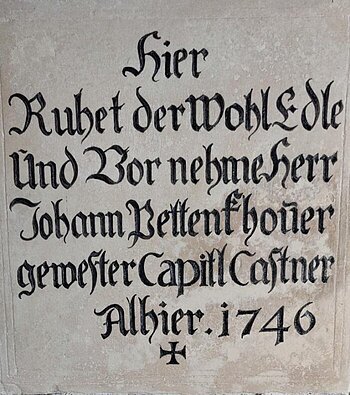 Hier
Ruhet der WohlEdle
Ůnd Vor nehme Herr
Johann Pettenkhoůer
geweſter Capitl Caſtner
Alhier. 1746